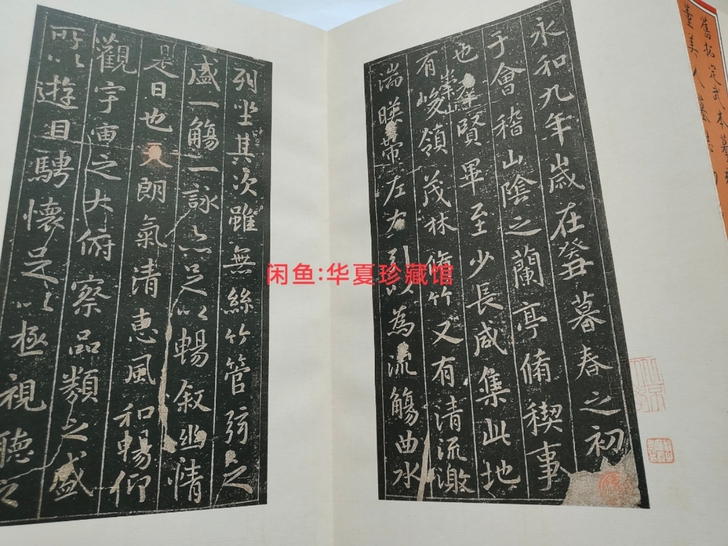 永和九年歲在癸暮春之初
于會稽山陰之蘭亭脩稧事
也羣賢畢至少長咸集此地
有崇峻領茂林脩竹又有清流激
湍暎帶左右引以為流觴曲水
列坐其次雖無絲竹管弦之
盛一觴一詠亦足以暢敘幽情
是日也天朗氣清惠風和暢仰
觀宇宙之大俯察品類之盛
所以遊目騁懷足以極視聽之
閑鱼:华夏珍藏馆